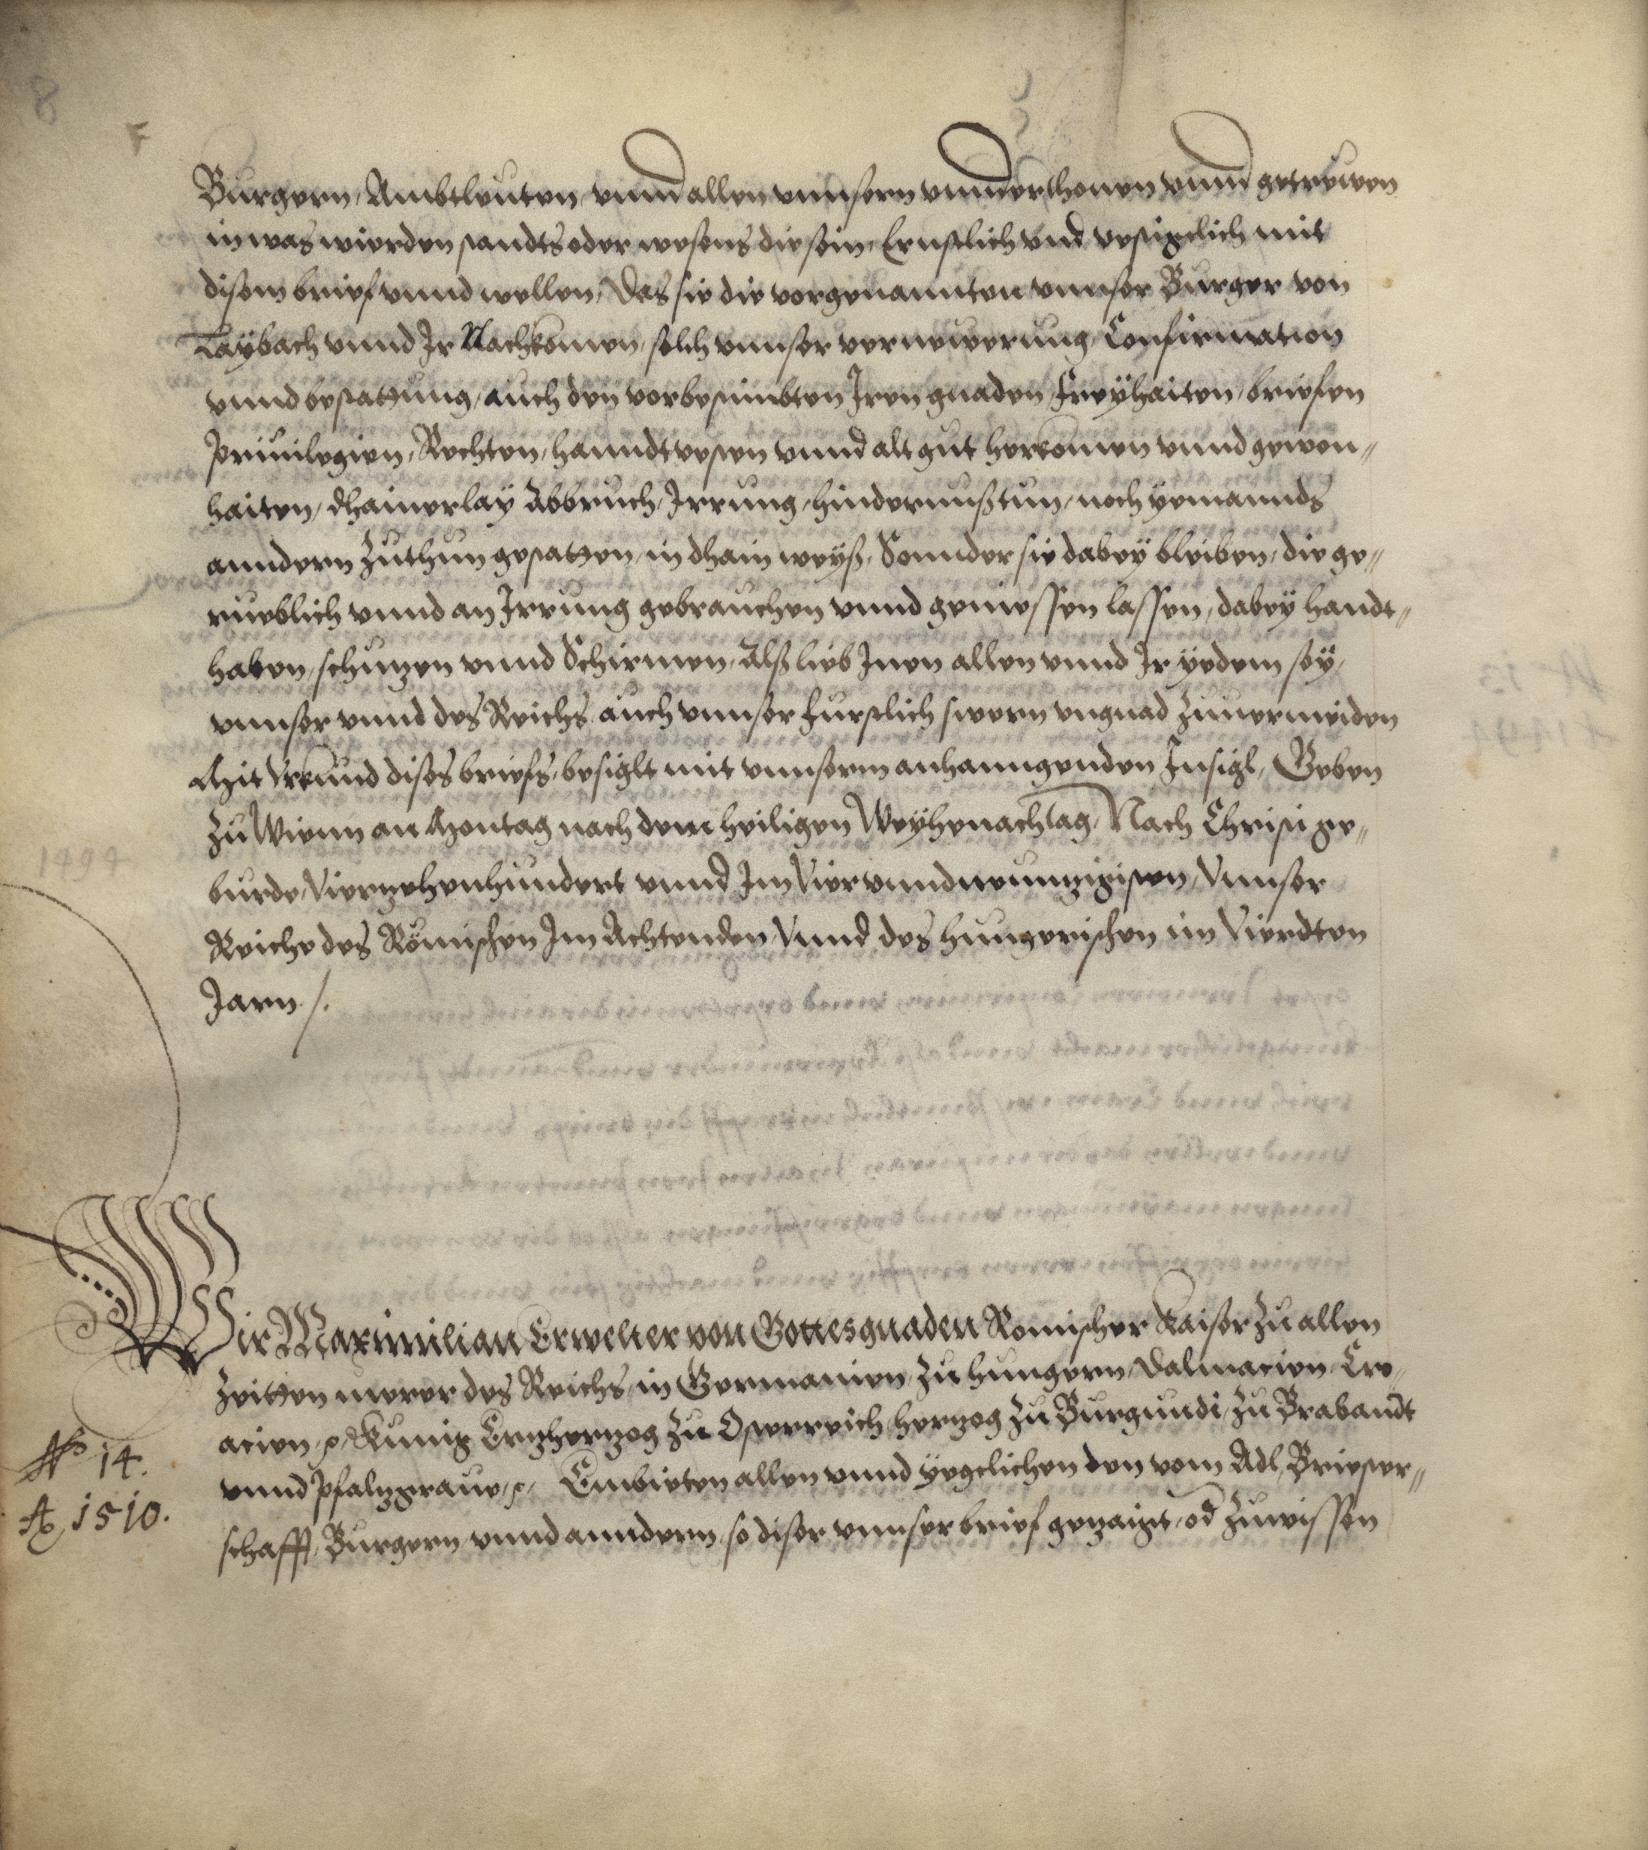 8
F
Burgern, Ambtleuten, vnnd allen vnnsern vnnderthonen vnnd getrewen
in was wierden standts oder wesens die sein, Ernstlich vnd vestigclich mit
disem brief vnnd wellen, Das sie die vorgenannten vnnser Burger von
Laybach vnnd Ir Nachkomen, solch vnnser vernewerung, Confirmation
vnnd bestattung, auch den vorbestimbten Iren gnaden, freyhaiten, briefen
Priuilegien, Rechten, hanndtvesten vnnd alt gut herkomen vnnd gewon„
haiten, dhainerlay Abbruch, Irrung, hindernuß tun, noch yemannds
anndern zuthun gestatten, in dhain weyß, Sonnder sie dabey bleiben, die ge„
rueblich vnnd an Irrung gebrauchen vnnd geniessen lassen, dabey handt„
haben, schuzen vnnd Schirmen, Alß lieb Inen allen vnnd Ir yedem sey,
vnnser vnnd des Reichs, auch vnnser furstlich swern vngnad zuuermeiden
Mit Vrkund dises briefs, besiglt mit vnnserm anhanngenden Insigl, Geben
zu Wienn an Montag nach dem heiligen Weyhenachtag, Nach Christi ge„
burde, Vierzehenhundert vnnd Im Vier vnnd neunzigisten, Vnnser
Reiche des Römischen Im Achtenden, Vnnd des hungerischen im Vierdten
Jarn /.
1494
Wir Maximilian Erwelter von Gottes gnaden Romischer Kaiser zu allen
Zeitten merer des Reichs, in Germanien, zu hungern, Dalmacien, Cro„
acien, ꝛc. Kunig, Erzherzog zu Osterreich, herzog zu Burgundi, zu Brabandt
vnnd Pfalzgraue, ꝛc. Embieten allen vnnd yegclichen den vom Adl, Briester„
schafft, Burgern vnnd anndern, so diser vnnser brief gezaigt, od zuwissen
No 14.
A. 1510.